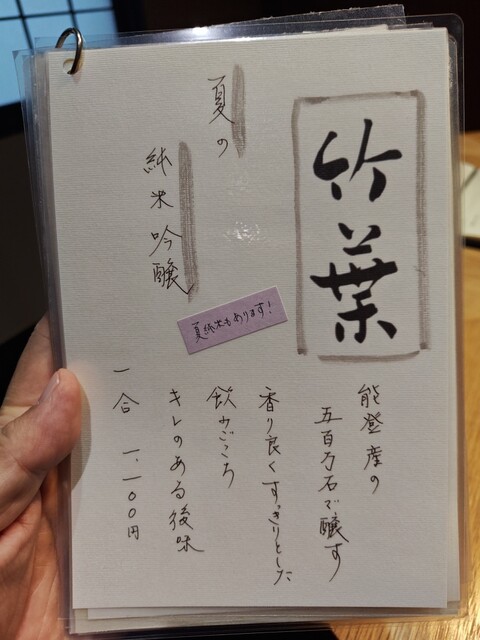 竹葉
夏の
純米吟醸
夏純米もあります!
能登産の
五百万石で醸す
香り良くすっきりとした
飲みごころ
キレのある後味
一合 一、一〇〇円